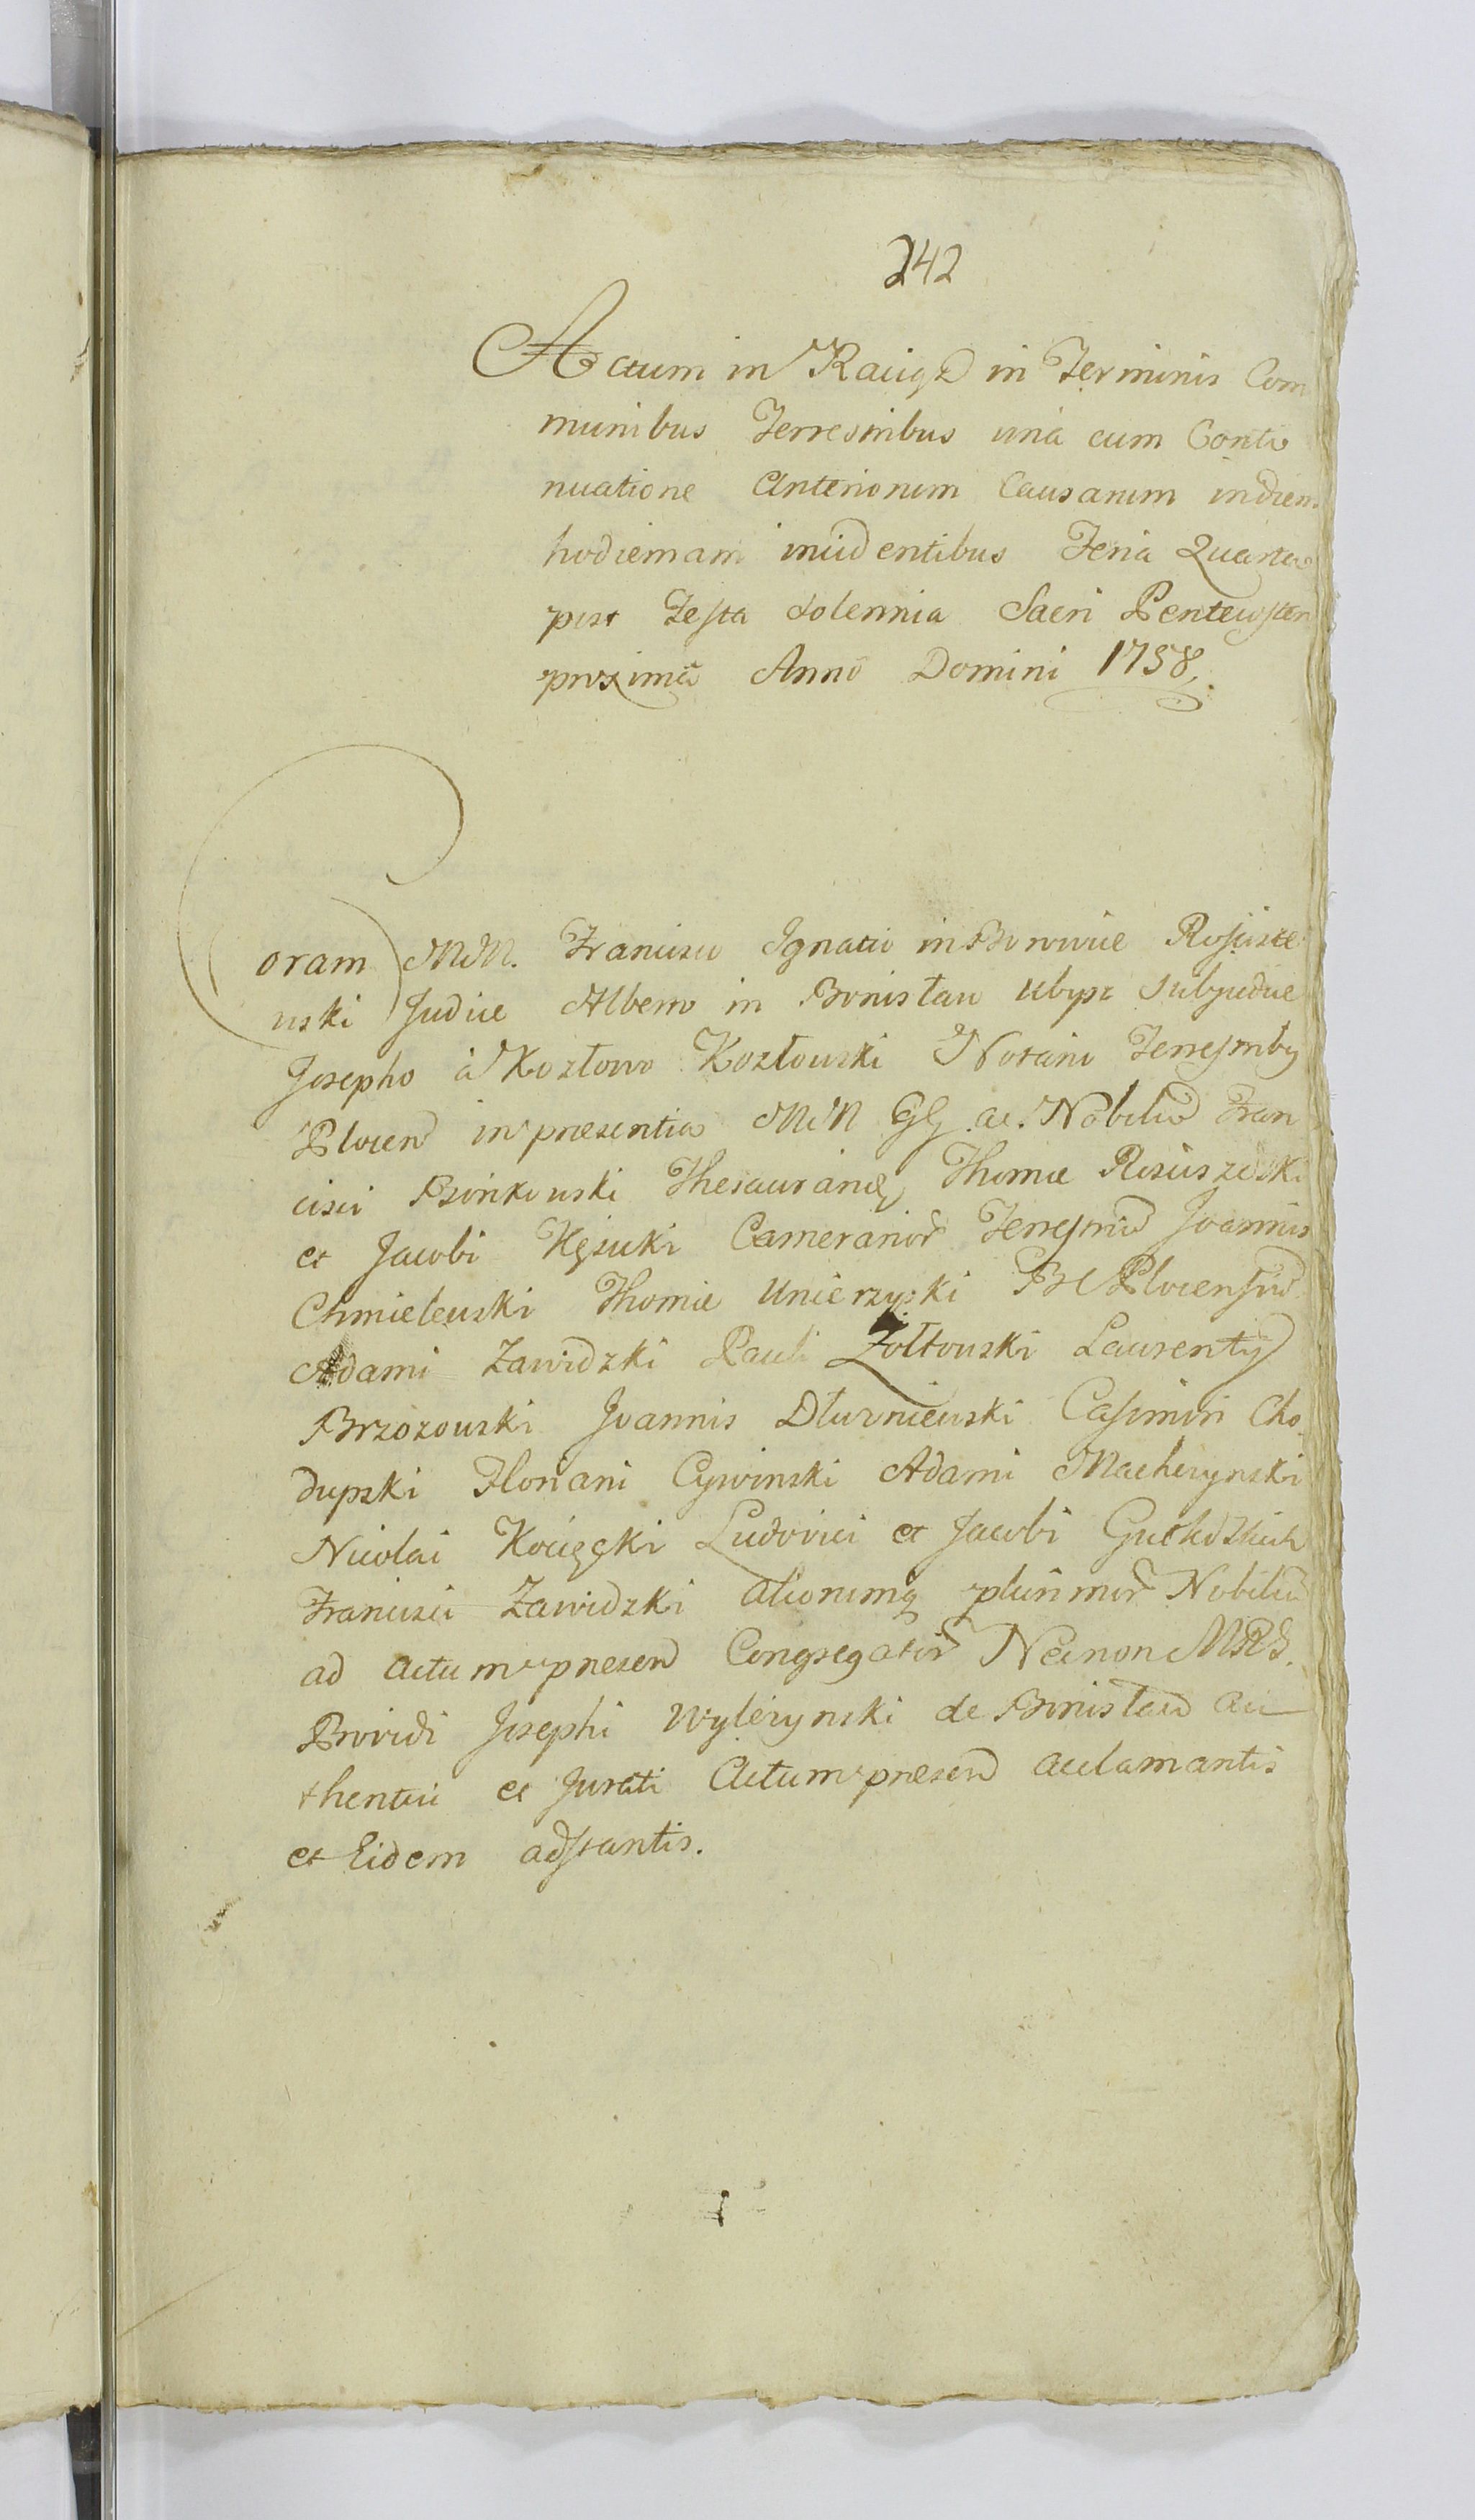 242
Actum in Raciąz in Terminis Com
munibus Terrestribus una cum Conti
nuatione Anteriorum Causarum in diem
hodiernam incidentibus Feria Quarta
post Festa Solennia Sacri Pentecosten
proxima Anno Domini 1758.
Coram MM. Francisco Ignatio in Borowice Rosciszew
uski Judice Alberto in Bonisław Ubysz Subjudice
Josepho à Kozłowo Kozłouski Notario Terrestribq
Plocen in presentia MM GG ac Nobiliu Fran
cisci Bońkouski Thesaurarie Thomæ Rosciszeuski
et Jacobi Kęsicki Camerarior Terrestriu Joannis
Chmieleuski Thomæ Unierzyski Plocensiu
Adami Zawidzki Pauli Zołtouski Laurentÿ
Brzozouski Joannis Dłuzniewski Casimiri Cho
dupski Floriani Cywinski Adami Machczynski
Nicolai Kocięcki Ludovici et Jacobi
Francisci Zawidzki aliorumq plurimor Nobiliu
ad actum presen Congregator Necnon
Providi Josephi Wylezynski de Bonisław au
thentici et Jurati Actum presen acclamantis
et Eidem adstantis.